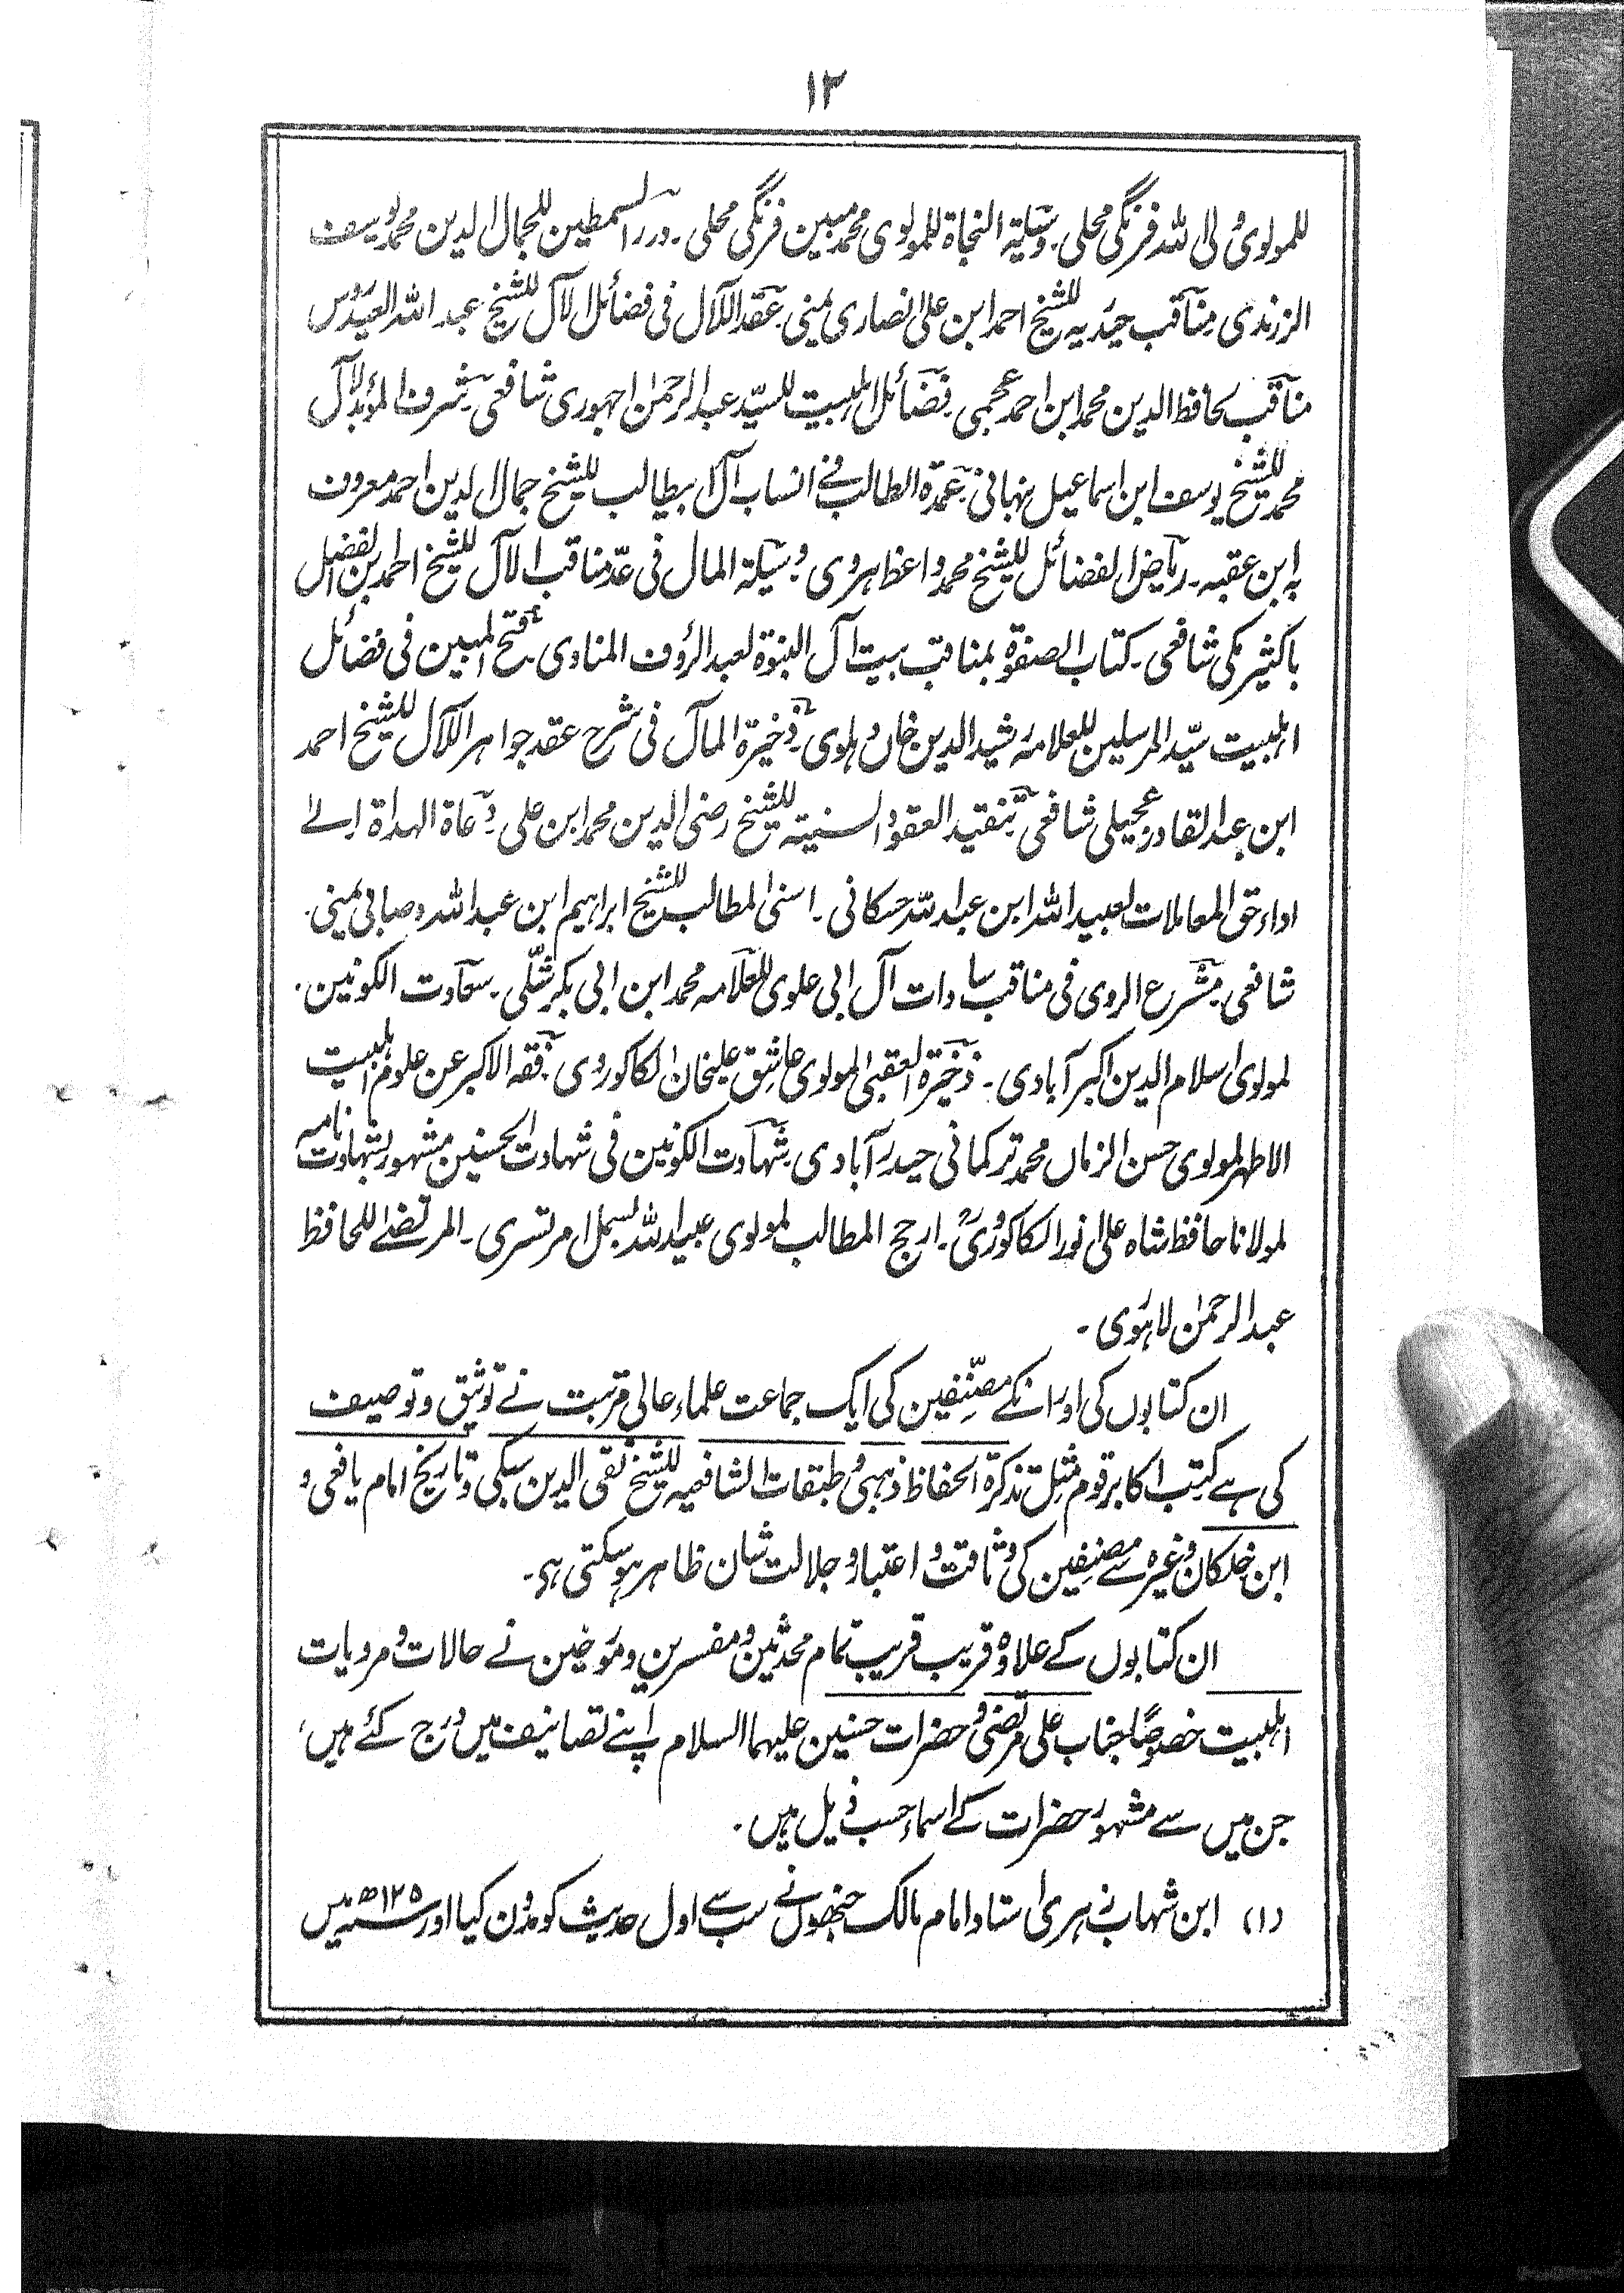 ۱۲
للمولوی ولی اللہ فرنگی محلی۔ وسیلۃ النجاۃ للمولوی محمد مبین فرنگی محلی۔ درر السمطین للجمال الدین محمد یوسف
الزرندی۔ مناقب حیدریہ للشیخ احمد ابن علی انصاری یمنی۔ عقد اللآل فی فضائل الآل للشیخ عبد اللہ العیدروس
مناقب لحافظ الدین محمد ابن احمد عجمی۔ فضائل اہلبیت للسیّد عبد الرحمٰن اجہوری شافعی۔ شرف المؤبد لآل
محمد للشیخ یوسف ابن اسماعیل نبہانی۔ عمدۃ الطالب فے انساب آل ابیطالب للشیخ جمال الدین احمد معروف
بہ ابن عقبہ۔ ریاض الفضائل للشیخ محمد واعظ ہروی وسیلۃ المال فی عدّ مناقب الآل للشیخ احمد بن الفضل
باکثیر مکی شافعی۔ کتاب الصفوۃ بمناقب بیت آل النبوۃ لعبد الرؤف المناوی۔ فتح المبین فی فضائل
اہلبیت سیّد المرسلین للعلامہ رشید الدین خان دہلوی۔ ذخیرۃ المآل فی شرح عقد جواہر اللآل للشیخ احمد
ابن عبد القادر عجیلی شافعی۔ تنقید العقود السنیتہ للشیخ رضی الدین محمد ابن علی۔ دعاۃ الہداۃ الے
اداء حق المعاملات لعبید اللہ ابن عبد اللہ حسکانی۔ اسنی المطالب للشیخ ابراہیم ابن عبد اللہ وصابی یمنی۔
شافعی۔ مشرع الروی فی مناقب سادات آل ابی علوی للعلّامہ محمد ابن ابی بکر شلّی۔ سعادت الکونین۔
لمولوی اسلام الدین اکبر آبادی۔ ذخیرۃ العقبیٰ لمولوی عاشق علیخان الکاکوروی۔ فقہ الاکبر عن علوم اہلبیت
الاطہر لمولوی حسن الزماں محمد ترکمانی حیدر آبادی۔ شہادت الکونین فی شہادت الحسنین مشہور بشہادت نامہ
لمولانا حافظ شاہ علی انور الکاکوریؒ۔ ارجح المطالب لمولوی عبید اللہ بسمل امرتسری۔ المرتضےٰ للحافظ
عبد الرحمٰن لاہوری۔
ان کتابوں کی اور انکے مصنّفین کی ایک جماعت علماء عالی مرتبت نے توثیق و توصیف
کی ہے کتب اکابر قوم مثل تذکرۃ الحفاظ ذہبی و طبقات الشافعیہ للشیخ تقی الدین سبکی و تاریخ امام یافعی و
ابن خلکان وغیرہ سے مصنفین کی وثاقت و اعتبار و جلالت شان ظاہر ہوسکتی ہی۔
ان کتابوں کے علاوہ قریب قریب تمام محدثین و مفسرین و مورخین نے حالات و مرویات
اہلبیت خصوصًا جناب علی مرتضیٰ و حضرات حسنین علیہما السلام اپنے تصانیف میں درج کئے ہیں،
جن میں سے مشہور حضرات کے اسماء حسب ذیل ہیں۔
(۱) ابن شہاب زہری استاد امام مالک جنھوں نے سب سے اول حدیث کو مدون کیا اور سنہ ۱۲۵ھ میں